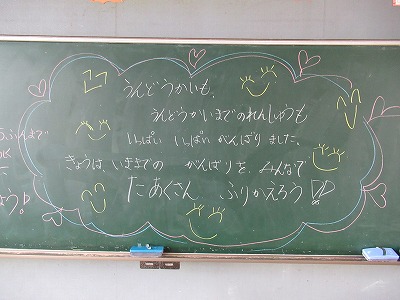 うんどうかいも、
うんどうかいまでのれんしゅうも
いっぱい いっぱい がんばりました。
きょうは、いままでの がんばりを、みんなで
たあくさん ふりかえろう!!